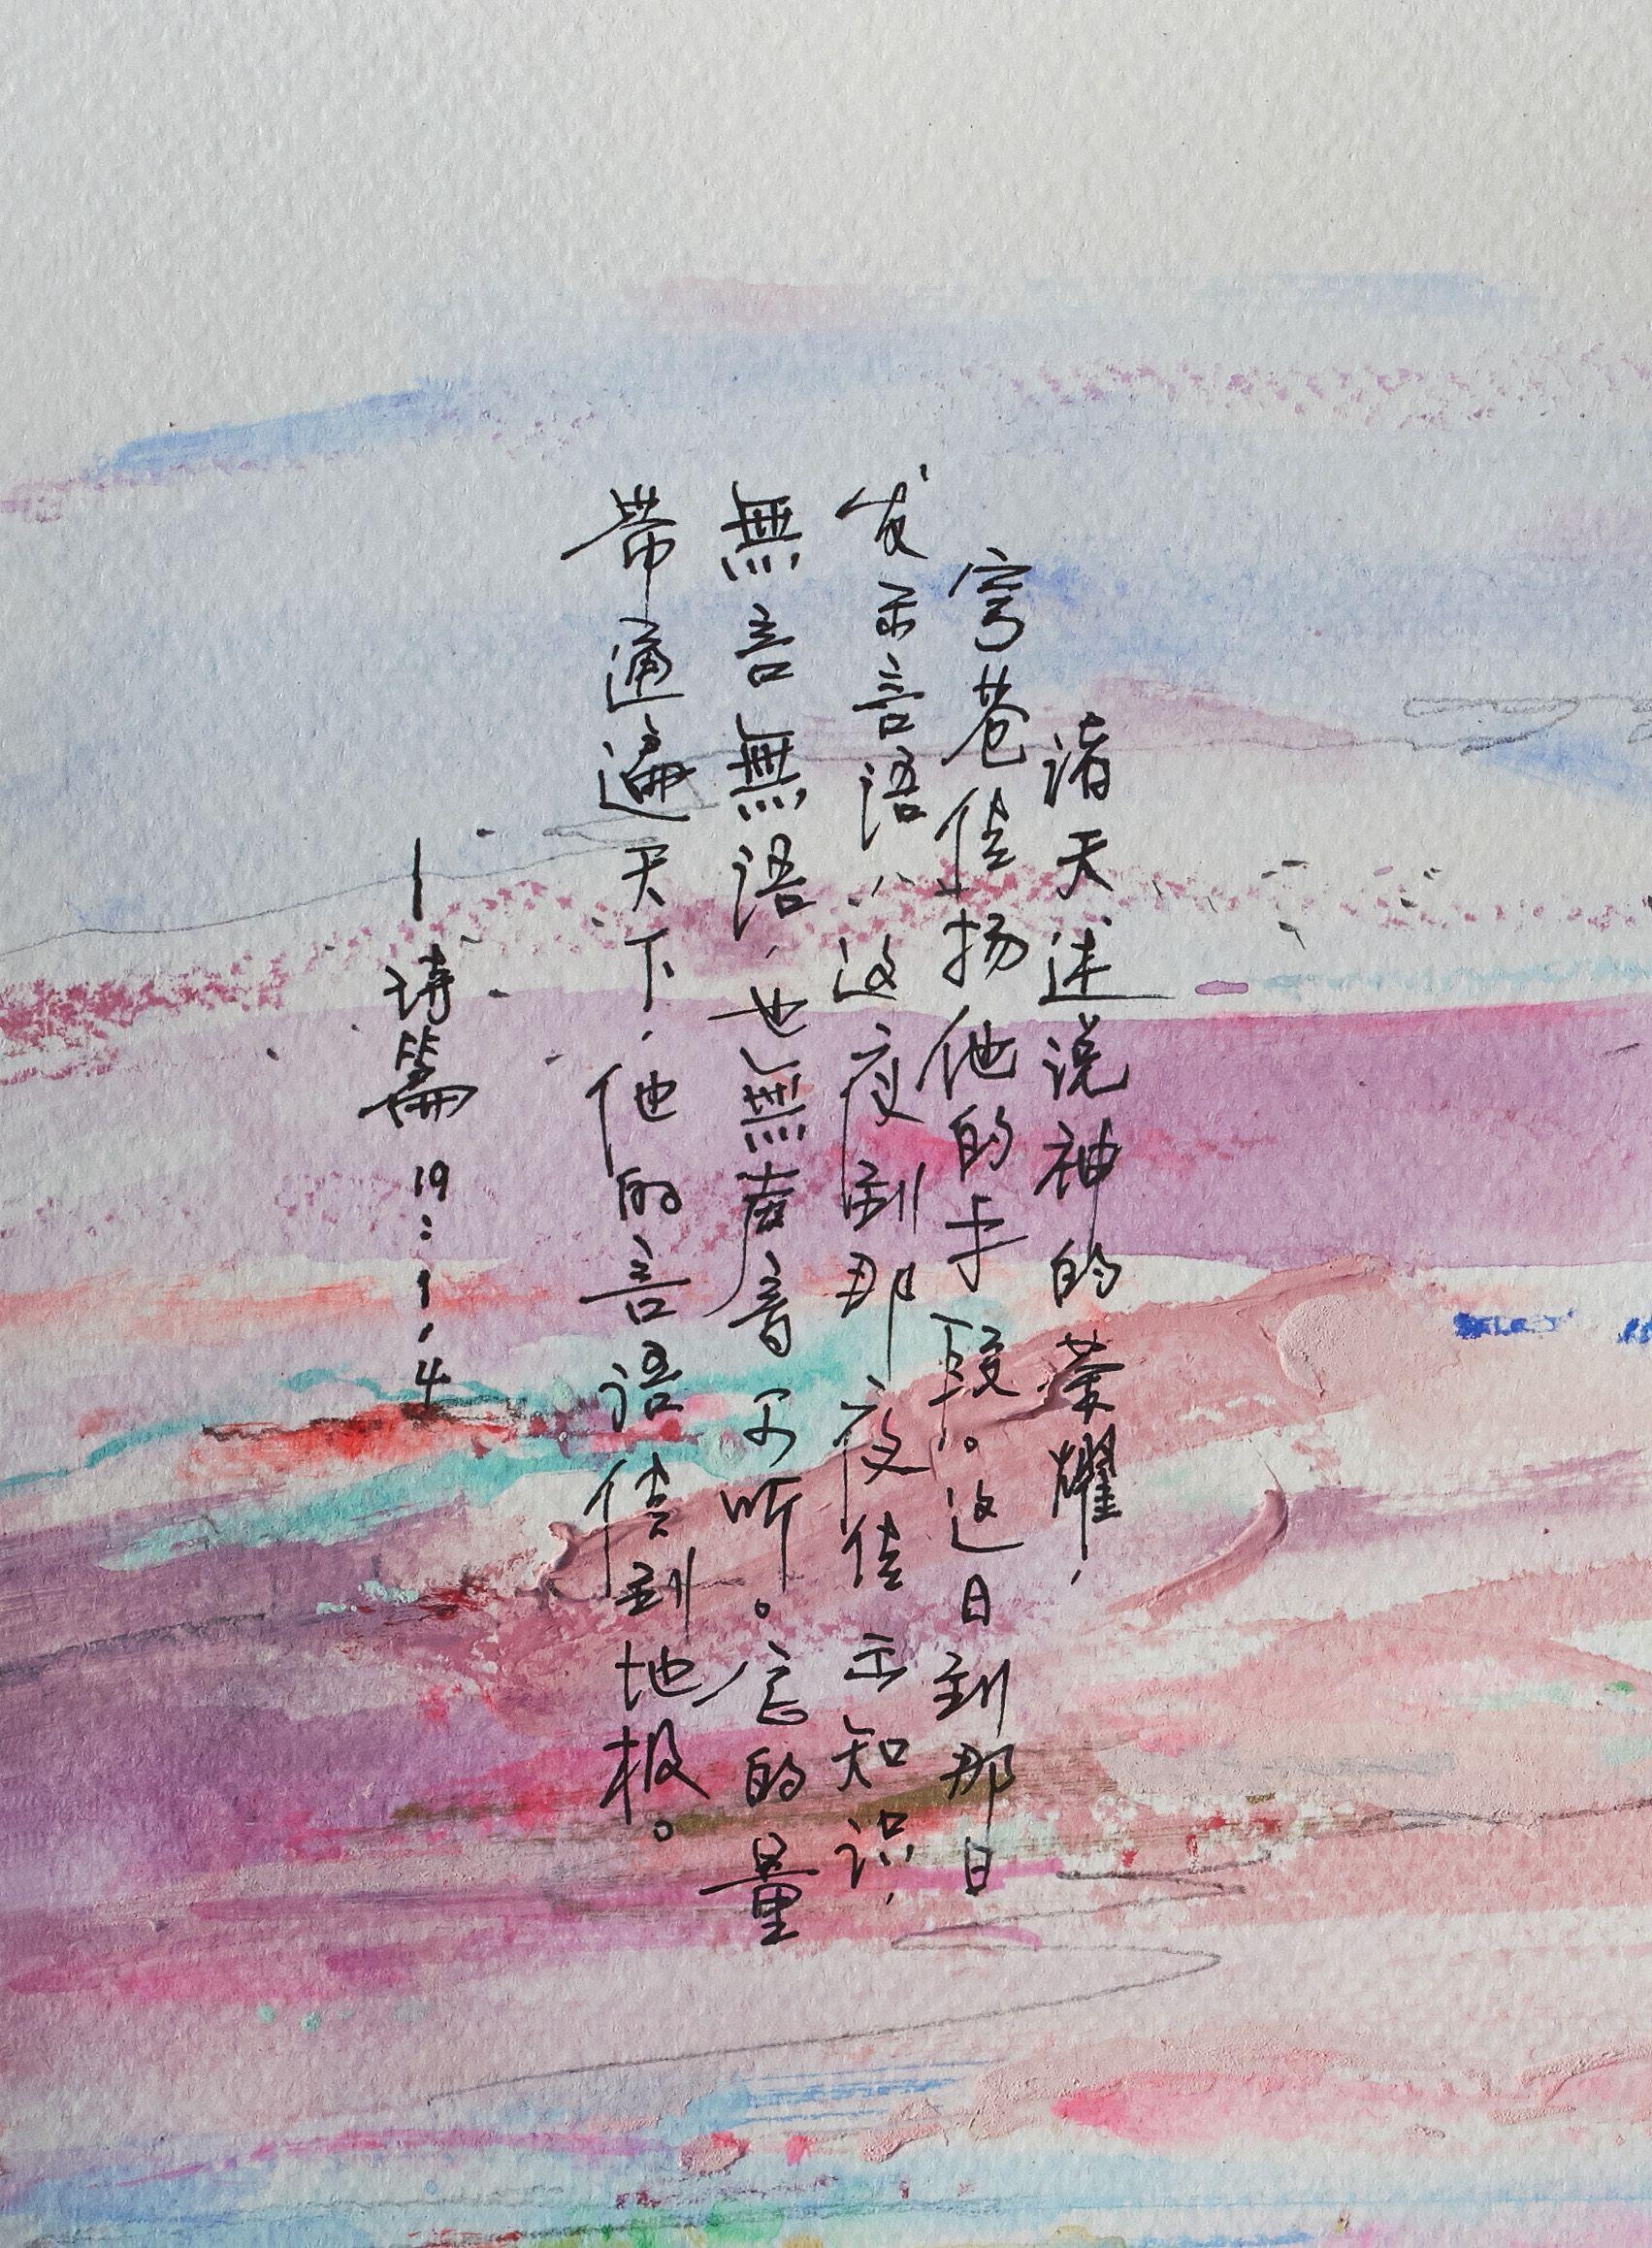 诸天述说神的荣耀，
穹苍传扬他的手段。这日到那日
发示言语；这夜到那夜传示知识，
無言無语，也無声音可听。它的量
带通遍天下，他的言语传到地极。
—诗篇 19:1-4